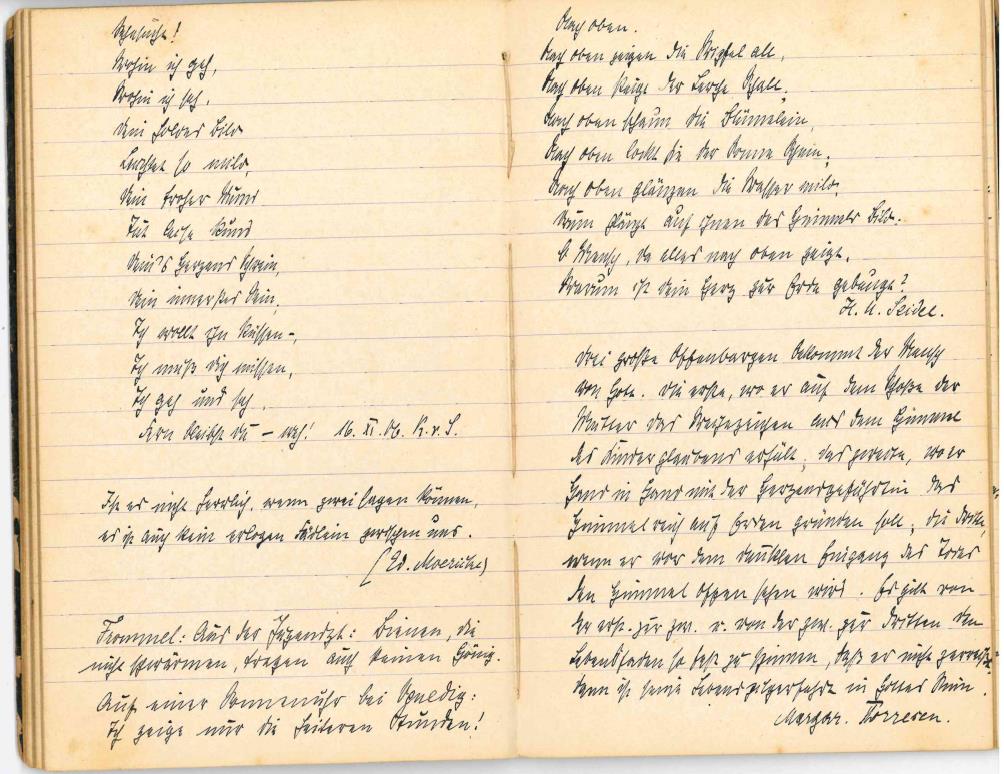 Sehnsucht!
Wohin ich geh,
Wohin ich seh,
Dein holdes Bild
Leuchtet so mild,
Dein froher Mund
Tut leise kund
Dein's Herzens Schrein,
Dein innerstes Sein,
Ich wollt ihn küssen -,
Ich muß dich missen,
Ich geh und seh,
Fern bleibst du - weh! 16. XI. 06. K. v. S.
Ist es nicht herrlich, wenn zwei sagen können,
es ist auch kein erlogen Fädlein zwischen uns.
(Ed. Moerike)
Frommel: Aus der Jugendzt: Bienen, die
nicht schwärmen, tragen auch keinen Honig.
Auf einer Sonnenuhr bei Venedig:
Ich zeige nur die heiteren Stunden!
Nach oben.
Nach oben zeigen die Wipfel all,
Nach oben steigt der Lerche Schall,
Nach oben schaun die Blümelein,
Nach oben lockt sie der Sonne Schein,
Nach oben glänzen die Wasser mild
Drum glänzt auf ihnen des Himmels Bild.
O Mensch, da alles nach oben zeigt,
Warum ist dein Herz zur Erde gebeugt?
H. A. Seidel.
Drei große Offenbargen bekommt der Mensch
von Gott. Die erste, wo er auf dem Schoße der
Mutter das aus dem Himmel
des Kinderglaubens erhält; das zweite, wo er
Hand in Hand mit der Herzensgefährtin das
Himmelreich auf Erden gründen soll; die dritte,
wenn er vor dem dunklen Eingang des Todes
den Himmel offen sehen wird. Es gilt von
der erst. zur zw. u. von der zw. zur dritten den
Lebensfaden so fest zu spinnen, daß er nicht zerreißt
dann ist seine Lebenspilgerfahrt in Gottes
Margar.